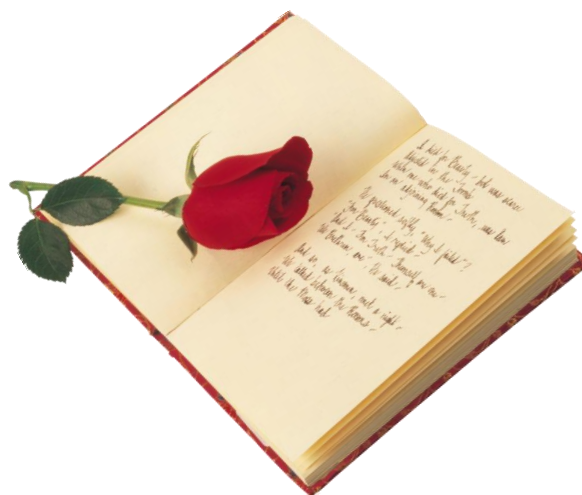 I died for Beauty - but was scarce
Adjusted in the Tomb
When one who died for Truth, was lain
In an adjoining Room -
He questioned softly "Why I failed"?
"For Beauty", I replied -
"And I - for Truth - Themself are one -
We Brethren, are", He said -
And so, as Kinsmen, met a night -
We talked between the Rooms -
Until the Moss had